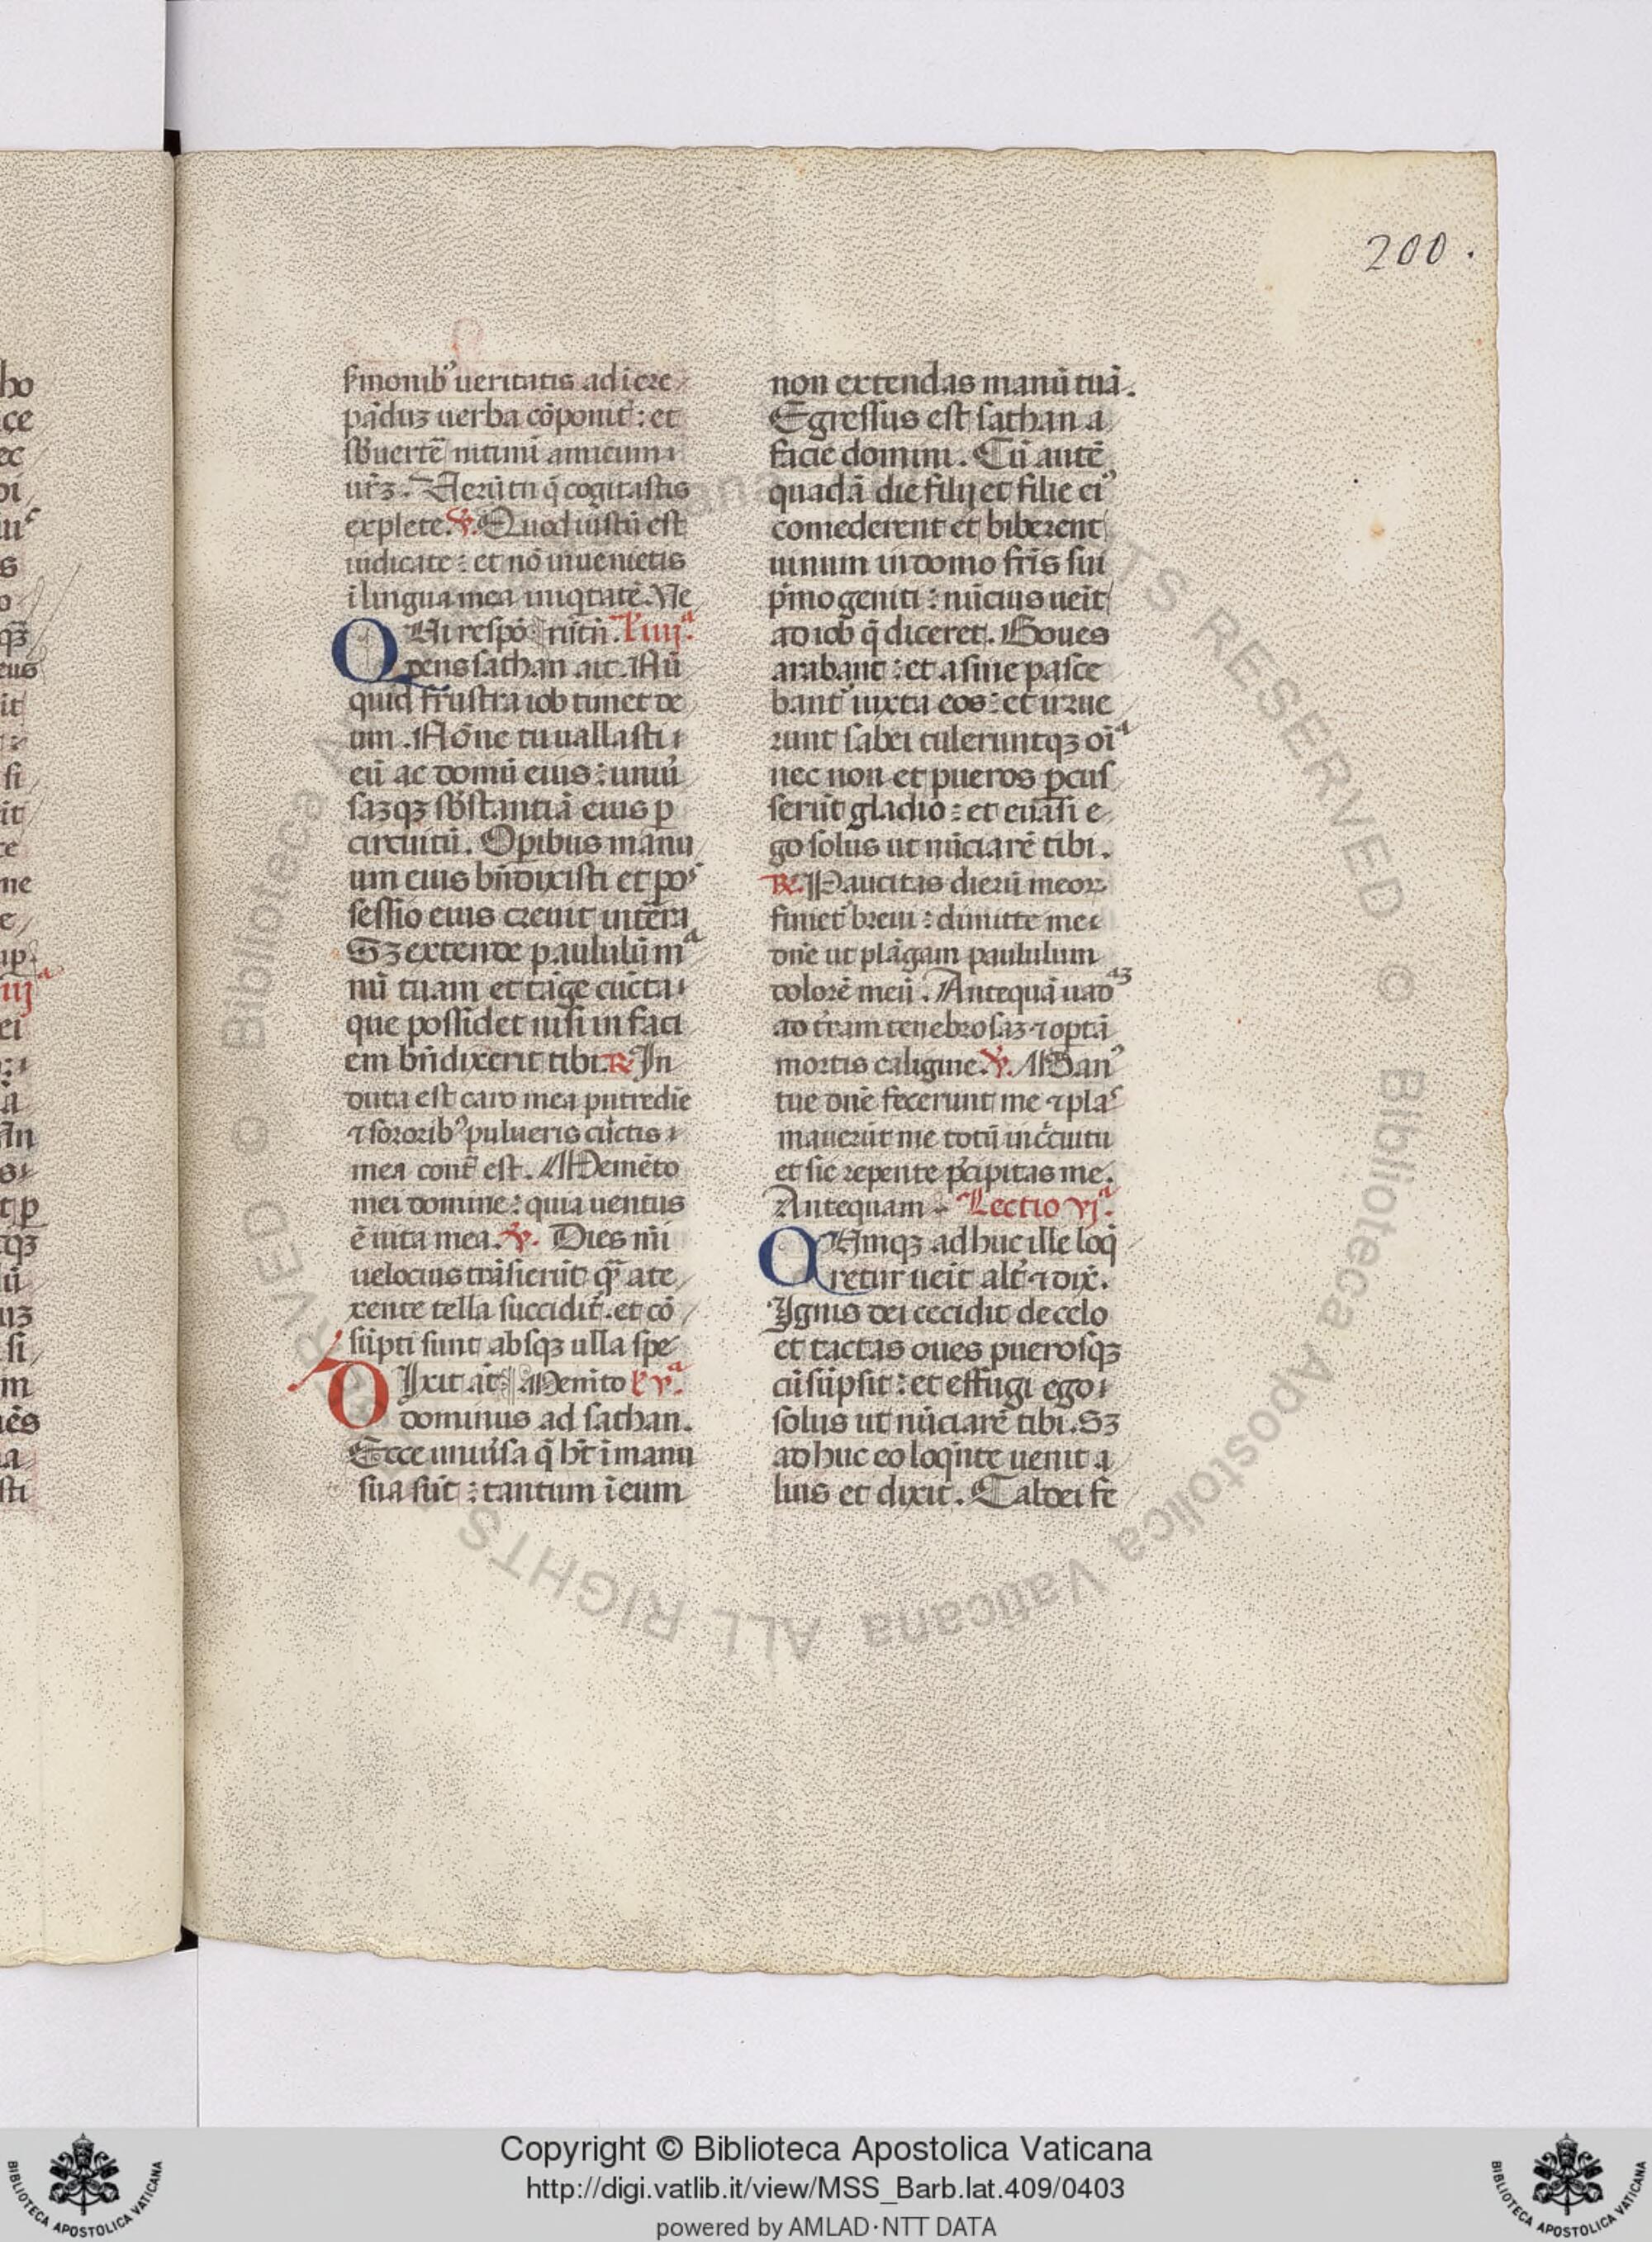 200.
ho
ce
ec
oi
s
o
qꝫ
eus
it
si
it
ce
ne
e
up.
iijª
ei
ā
An
t ꝑ
tqꝫ
ū
uꝫ
si
m
nēs
a
sti
ẜmonibꝰ ueritatis ad ı̄cre
pāduꝫ uerba cōponitꝭ: et
sb̄uertē nitimī amicum
ur̄ꝫ. Ueꝝū tn̄ q̄ cogitastis
explete. ℣. Quod iustū est
iudicate: et nō inuenietis
ī lingua mea iniq̄tatē. Ne
QUi respō rūtn̄. ł iiijª.
dens sathan ait. Nū
quid frustra iob timet de
um. Nōne tu uallasti
eū ac domū eius: uniu̾
saꝫqꝫ sb̄stantiā eius ꝑ
circuitū. Oꝑibus manu
um eius bn̄dixisti et poˢ
sessio eius creuit in terra
Sꝫ extende paululū mª
nū tuam et tāge cūcta
que possidet nisi in faci
em bn̄dixerit tibi. ℟. In
duta est caro mea putredīe
⁊ sororibꝰ pulueris cūctis
mea cont̄ est. Memēto
mei domine: quia uentus
ē uita mea. ℣. Dies mī
uelocius trāsierūt qᷓ a te
xente tella succiditꝭ. et cō
sūpti sunt absqꝫ ulla spe
DIxit āt Memto ł vª.
dominus ad sathan.
Ecce uniu̾sa q̄ ht̄ ī manu
sua sūt: tantum ī eum
non extendas manū tuā.
Egressus est sathan a
facie domini. Cū autē
quadā die filij et filie eiꝰ
comederent et biberent
uinum in domo fr̄is sui
pͥmogeniti: nūcius ueīt
ad iob q̄ diceret. Boues
arabant: et asine pasce
bantꝭ iuxta eos: et irrue
runt sabei tuleruntqꝫ oīª
nec non et pueros ꝑcus
serūt gladio: et euasi e
go solus ut nūciarē tibi.
℟. Paucitas dierū meoꝝ
finietꝭ breui: dimitte me
dn̄e ut plāgam paululum
dolorē meū. Antequā uadªꝫ
ad t̄ram tenebrosaꝫ ⁊ optā
mortis caligine. ℣. Manꝰ
tue dn̄e fecerunt me ⁊ plaˢ
mauerūt me totū in c̄cuitu
et sic repente p̄cipitas me.
Antequam. Lectio vjª.
QUmqꝫ ad huc ille loq̄
retur ueīt alt̄ ⁊ dix̄.
Ignis dei cecidit de celo
et tactas oues puerosqꝫ
cūsūpsit: et effugi ego
solus ut nūciarē tibi. Sꝫ
ad huc eo loq̄nte uenit a
lius et dixit. Caldei fe
Copyright © Biblioteca Apostolica Vaticana
http://digi.vatlib.it/view/MSS_Barb.lat.409/0403
powered by AMLAD·NTT DATA
BIBLIOTECA APOSTOLICA VATICANA
BIBLIOTECA APOSTOLICA VATICANA
© Biblioteca Apostolica Vaticana ALL RIGHTS RESERVED